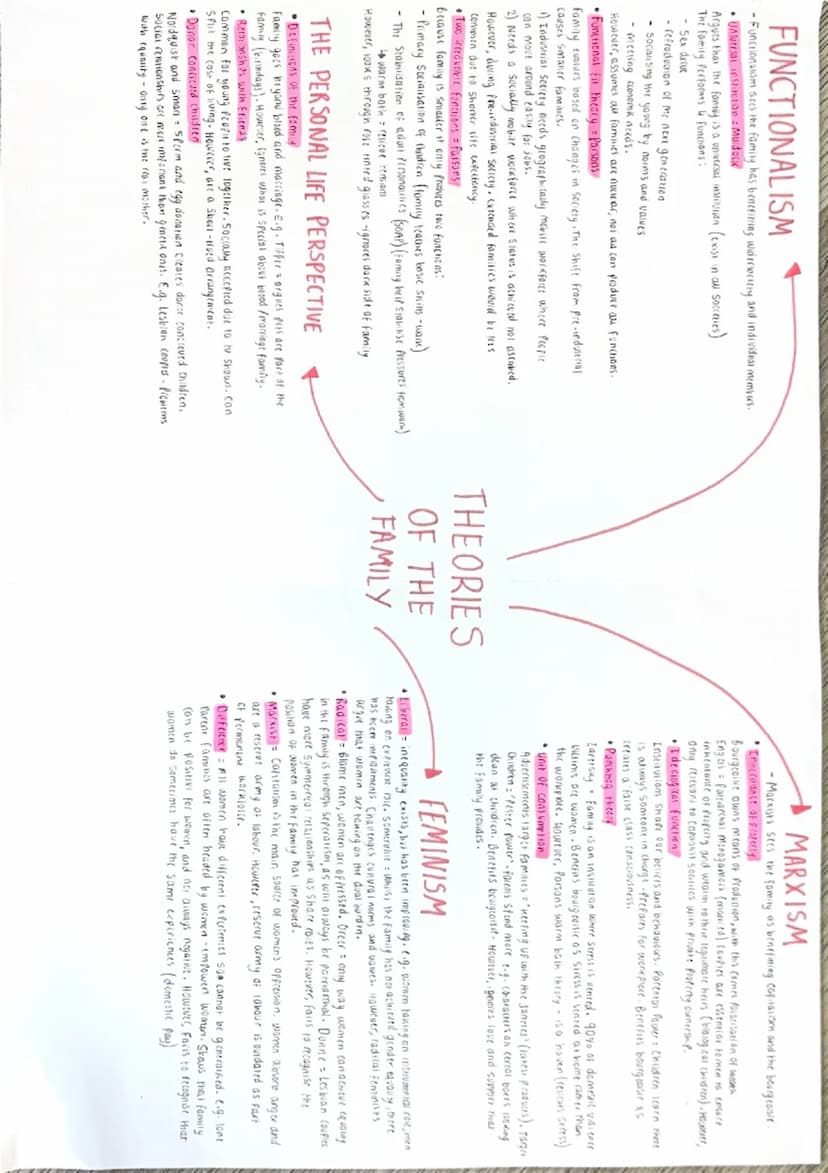 THEORIES
OF THE
FAMILY
FUNCTIONALISM
- Functionalism sees the family has benefiting wider society and individual members.
• Universal institution = Murdock
Argues that the family is a universal institution (exist in all societies)
The family performs 4 functions:
- Sex drive
- Reproduction of the next generation
- Socialising the young by norms and values
- Meeting economic needs.
However, assumes all families are nuclear, not all can produce all functions.
• Functional Fit Theory = Parsons
Family evolves based on changes in society. The shift from pre-industrial
causes smaller families.
1) Industrial Society needs geographically mobile workforce where people
can move around easily for jobs.
2) Needs a socially mobile workforce where status is achieved not ascribed.
However, during pre-industrial society, extended families would be less
common due to shorter life expectancy.
• Two irreducible functions = Parsons
Because family is smaller it only produces two functions:
- Primary socialisation of children (family teaches basic skills - )
- The stabilisation of adult personalities (SOAP) (family help stabilise pressures from work)
↳ warm bath = relieve tensions
However, looks through rose tinted glasses - ignores dark side of family
THE PERSONAL LIFE PERSPECTIVE
• Definitions of the family
Family goes beyond blood and marriage. E.g. Tipper = argues pets are part of the
family (birthdays). However, ignores what is special about blood/marriage family.
• Relationships with friends
Common for young people to live together. Socially accepted due to TV shows. Can
split the cost of living. However, are a short-lived arrangement.
• Donor conceived children
Nordquist and Smart = sperm and egg donation creates donor conceived children.
Social relationships are more important than genetic ones. E.g. Lesbian couples - problems
with equality - only one is the real mother.
MARXISM
- Marxists sees the family as benefiting capitalism and the bourgeoisie
• Inheritance of property
Bourgeoisie owns means of production, with this comes polarisation of wealth
Engels = Patriarchal monogamous (married) couples are essential to men to ensure
inheritance of property and wealth to their legitimate heirs (biological children). However,
only relevant to capitalist societies with private property ownership.
• Ideological Function
Institutions shape our beliefs and behaviours. Parental Power = Children learn there
is always someone in charge - prepares for workplace. Benefits bourgeoisie as
creates a false class consciousness.
• theory
Zaretsky = Family is an institution where stress is vented. 90% of domestic violence
victims are women. Benefits bourgeoisie as stress is vented at home rather than
the workplace. However, Parsons warm bath theory - is a haven (relieves stress)
• Unit of consumption
Advertisements target families = 'keeping up with the Joneses' (latest products). Target
children = 'Pester Power' - Parents spend more e.g. characters on cereal boxes looking
down at children. Benefits bourgeoisie. However, ignores love and support that
the family provides.
FEMINISM
• Liberal = inequality exists, but has been improving. e.g. women taking on instrumental role, men
taking on expressive role. Somerville = Whilst the family has not achieved gender equality, there
has been improvement. Challenges cultural norms and values. However, radical feminists
argue that women are taking on the dual burden.
• Radical = Blame men, women are oppressed. Greer = only way women can achieve equality
in the family is through seperatism, as will always be patriarchal. Dunne = Lesbian couples
have more symmetrical relationships as share roles. However, fails to recognise the
position of women in the family has improved.
• Marxist = Capitalism is the main source of women's oppression. Women absorb anger and
are a reserve army of labour. However, reserve army of labour is outdated as part
of permanent workforce.
• Difference = All women have different experiences so cannot be generalised. e.g. lone
parent families are often headed by women - empower women. Shows that family
can be positive for women, and not always negative. However, fails to recognise that
women do sometimes have the same experiences (domestic )